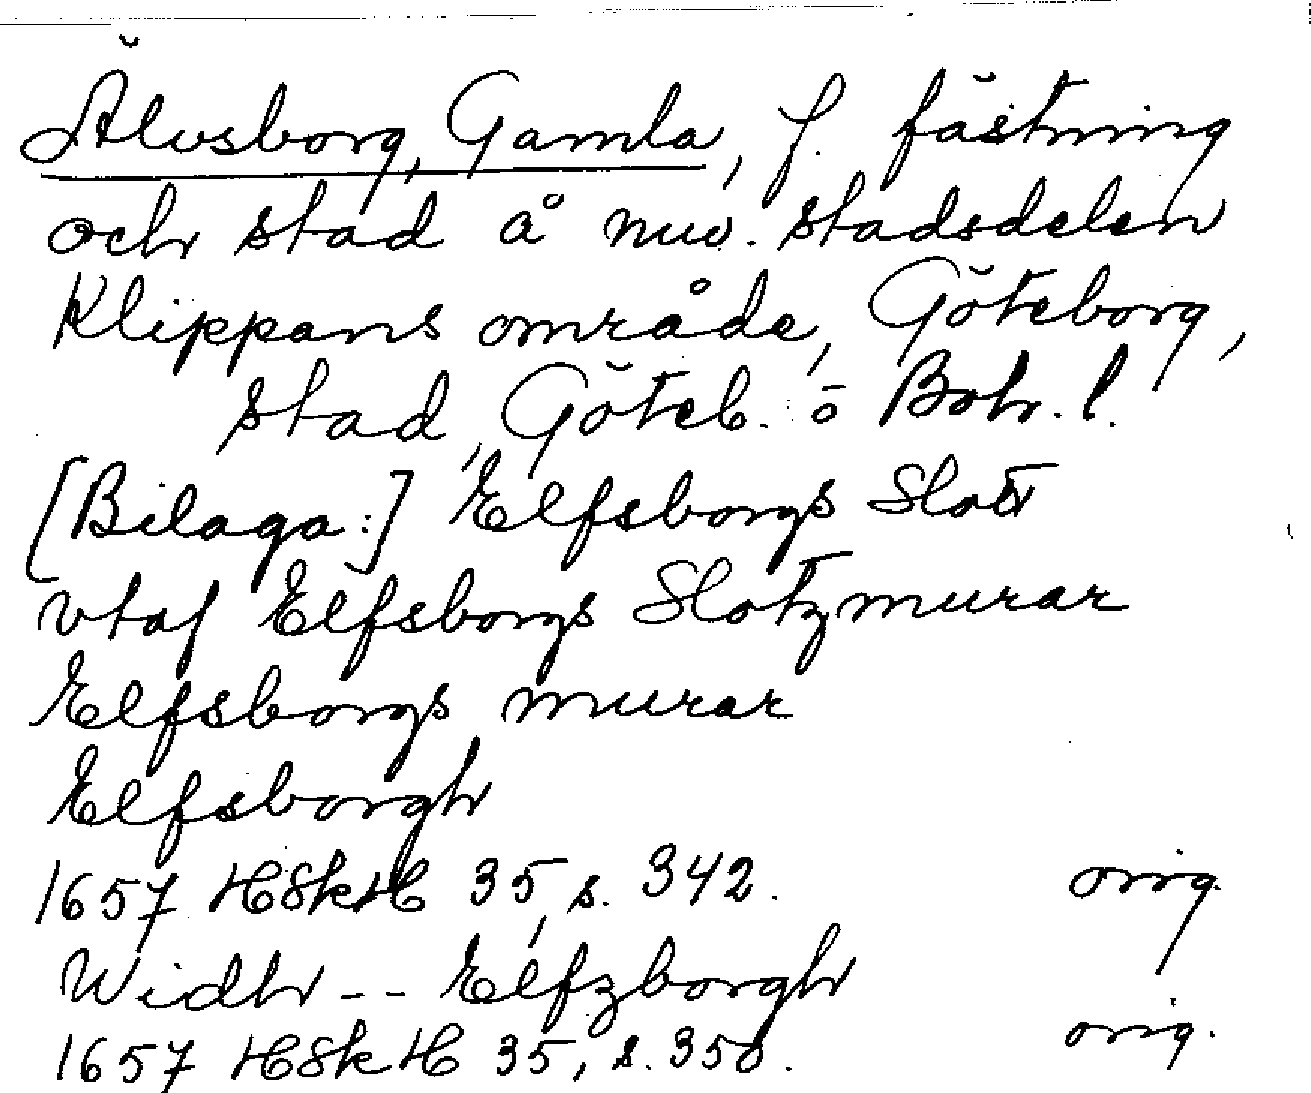 Älvsborg, Gamla, f. fästning
och stad å nuv. stadsdelen
Klippans område, Göteborg,
stad, Göteb. o Boh. l.
[Bilaga:] Elfsborgs Slott
vtaf Elfsborgs Slotzmurar
Elfsborgs murar
Elfsborgh
1657 HSkH 35, s. 342. orig.
Widh -- Elfzborgh
1657 HSkH 35, s. 350. orig.